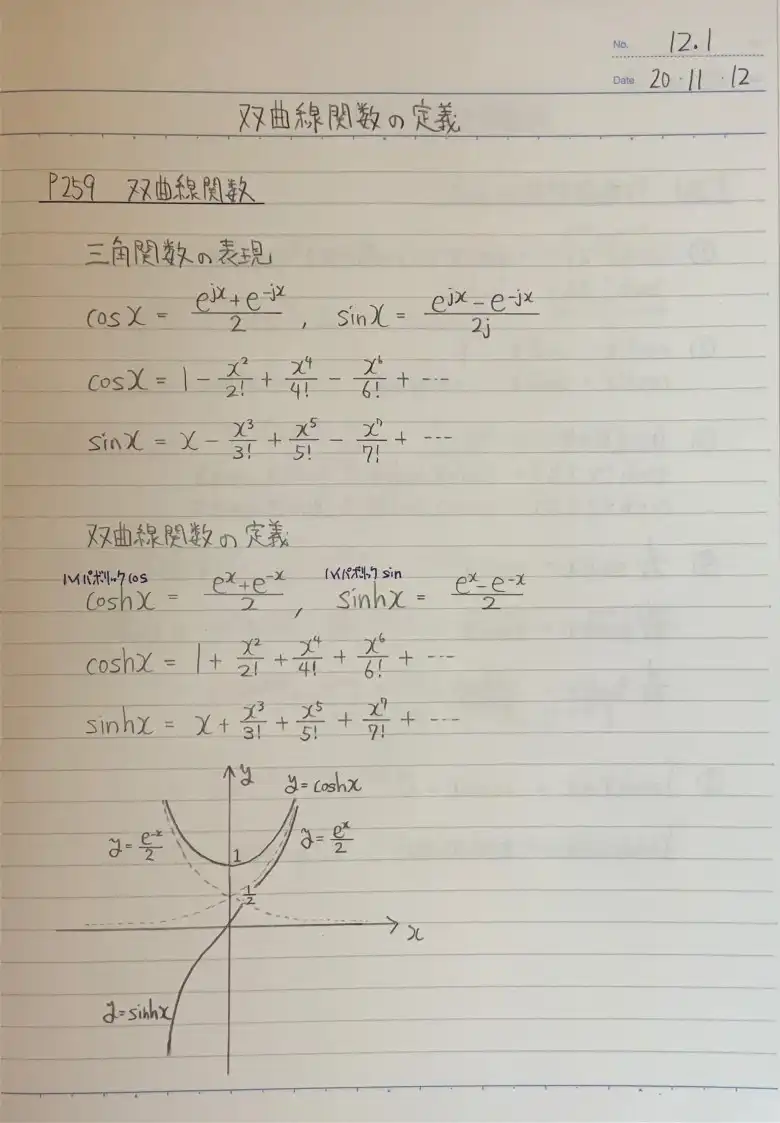 No. 12.1
Date 20・11・12
双曲線関数の定義
P259 双曲線関数
三角関数の表現
cosx = (e^{jx} + e^{-jx})/2 , sinx = (e^{jx} - e^{-jx})/2j
cosx = 1 - x^2/2! + x^4/4! - x^6/6! + ---
sinx = x - x^3/3! + x^5/5! - x^7/7! + ---
双曲線関数の定義
ハイパボリックcos ハイパボリックsin
coshx = (e^x + e^{-x})/2 , sinhx = (e^x - e^{-x})/2
coshx = 1 + x^2/2! + x^4/4! + x^6/6! + ---
sinhx = x + x^3/3! + x^5/5! + x^7/7! + ---
y
y = coshx
y = e^{-x}/2
1
y = e^x/2
1/2
x
y = sinhx